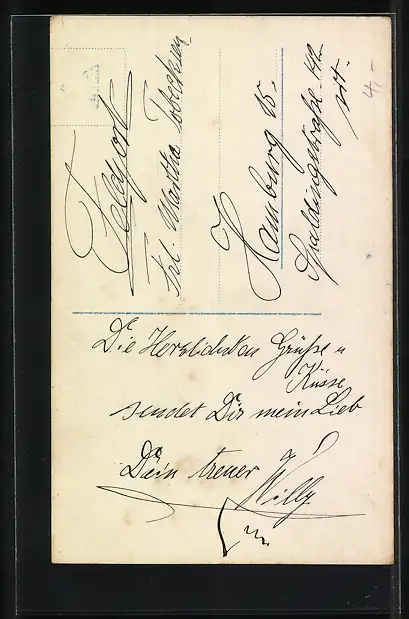 Feldpost
Frl. Martha
Hamburg 15.
Spaldingstraße 142
Die Herzlichsten Grüße u
Küsse
sendet Dir mein Lieb
Dein treuer
Willy
4,-